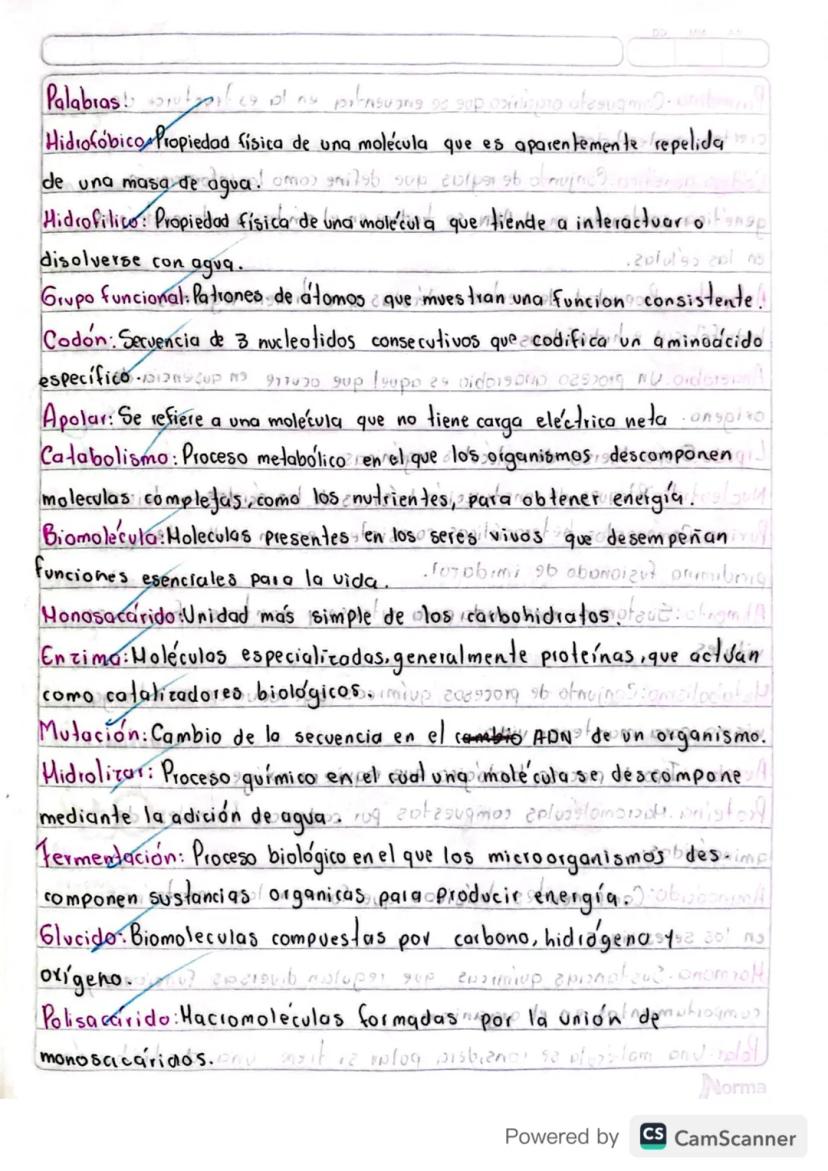 Palabras:
Hidrofóbico: Propiedad física de una molécula que es aparentemente repelida
de una masa de agua.
Hidrofílico: Propiedad física de una molécula que tiende a interactuar o
disolverse con agua.
Grupo funcional: Patrones de átomos que muestran una funcion consistente.
Codón: Secuencia de 3 nucleotidos consecutivos que codifica un aminoácido
específico.
Apolar: Se refiere a una molécula que no tiene carga eléctrica neta
Catabolismo: Proceso metabólico en el que los organismos descomponen
moleculas complejas, como los nutrientes, para obtener energía.
Biomolécula: Moleculas presentes en los seres vivos que desempeñan
funciones esenciales para la vida.
Monosacárido: Unidad más simple de los carbohidratos.
Enzima: Moléculas especializadas, generalmente proteínas, que actúan
como catalizadores biológicos.
Mutación: Cambio de la secuencia en el cambio ADN de un organismo.
Hidrolizar: Proceso químico en el cual una molécula se descompone
mediante la adición de agua.
Fermentación: Proceso biológico en el que los microorganismos des-
componen sustancias organicas para producir energía.
Glucido: Biomoleculas compuestas por carbono, hidrógeno y
oxígeno.
Polisacárido: Macromoléculas formadas por la unión de
monosacáridos.
Norma
Powered by CS CamScanner